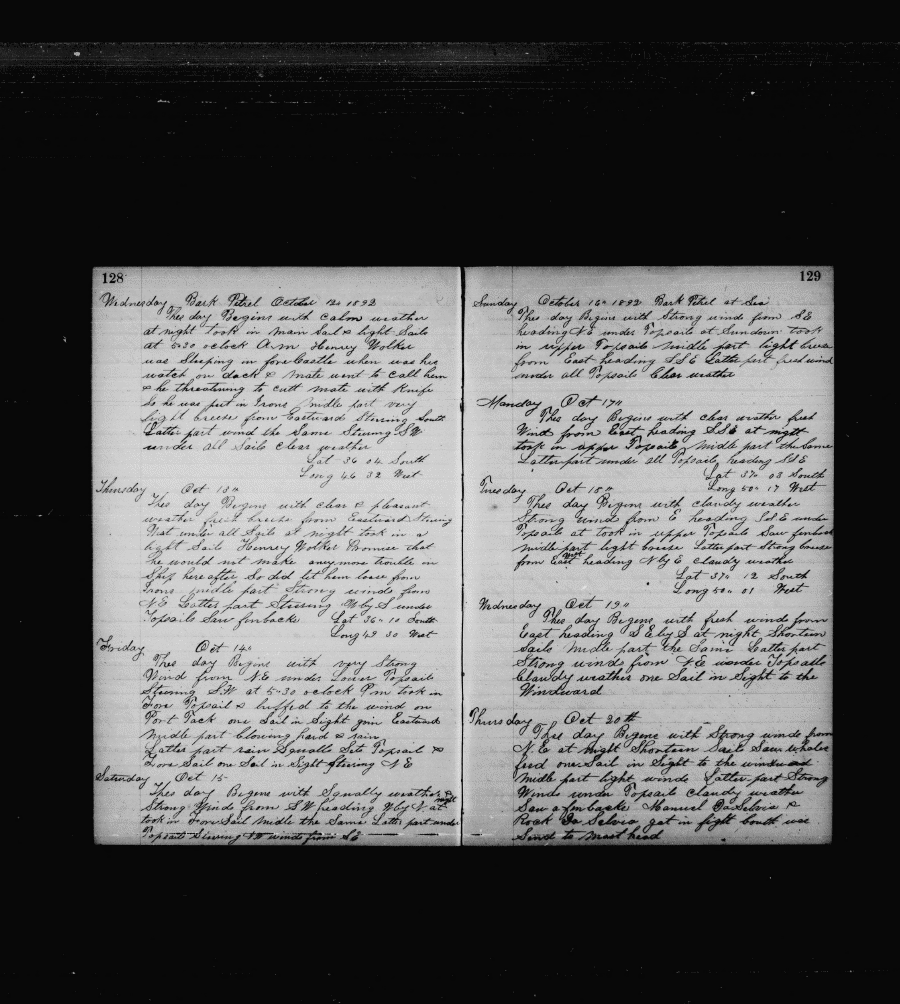 128
Wednesday Bark Petrel October 12" 1892
Thes day Begins with Calm weather
at night took in Main Sail & light Sails
at 5-30 oclock A.m Henrey Wolker
was Sleeping in fore Castle when was his
watch on deck & Mate went to Call him
& he threatning to Cutt Mate with Knife
So he was put in Irons Midle part very
light breeze from Eastward Stering South
Latter part wind the Same Stering SW
under all Sails Clear weather
Lat 36 04 South
Long 46 32 West
Thursday Oct 13"
Thes day Begins with clear & pleasant
weather fresh breeze from Eastward Stering
West under all Sails at night took in a
light Sails Henrey Wolker Bromise that
he would not make anymore trouble in
Ship here after So did let him loose from
Irons midle part Strong winds from
NE Latter part Stering W by S under
Topsails Saw finbacks Lat 36" 10 South
Long 49 30 West
Friday Oct 14"
Thes day Begins with very Strong
Wind from NE under Lower Topsails
Stering S.W at 5-30 oclock P.m took in
Fore Topsail & luffed to the wind on
Port Tack one Sail in Sight goin Eastward
Midle part blowing hard & rain
Latter part rain Squalls Sets Topsail &
Fore Sail one Sail in Sight Stering NE
Saturday Oct 15
Thes day Begins with Squally weather &
Strong Winds from SW heading W by N at night
took in Fore Sail Midle the Same Latter part under
Topsails Stering winds from SE
129
Sunday October 16" 1892 Bark Petrel at Sea
Thes day Begins with Strong winds from SE
heading NE under Topsails at Sundown took
in upper Topsails Midle part light breeze
from East heading SSE Latter part fresh wind
under all Topsails Clear weather
Monday Oct 17"
Thes day Begins with clear weather fresh
Wind from East heading SSE at night
took in upper Topsails Midle part the Same
Latter part under all Topsails heading SSE
Lat 37" 03 South
Long 50" 17 West
Tuesday Oct 18"
Thes day Begins with claudy weather
Strong wind from E heading SSE under
Topsails at took in upper Topsails Saw finback
midle part light breeze Latter part Strong breeze
from East West heading N by E claudy weather
Lat 37" 12 South
Long 50" 01 West
Wednesday Oct 19"
Thes day Begins with fresh winds from
East heading S E by S at night Shortein
Sails Midle part the Same Latter part
Strong winds from NE under Topsails
Claudy weather one Sail in Sight to the
Windward
Thursday Oct 20th
Thes day Begins with Strong winds from
N E at Night Shortein Sail Saw whales
feed one Sail in Sight to the windward
Midle part light winds Latter part Strong
Winds under Topsails claudy weather
Saw a finbacks Manuel Da Selvia &
Rock Da Selvia got in fight bouth was
Send to Mast head